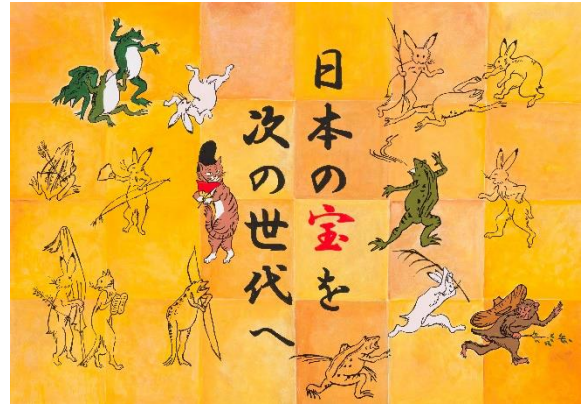 日本の宝を
次の世代へ